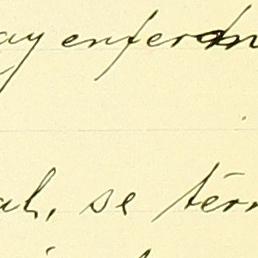 ay enferm
al, se tér